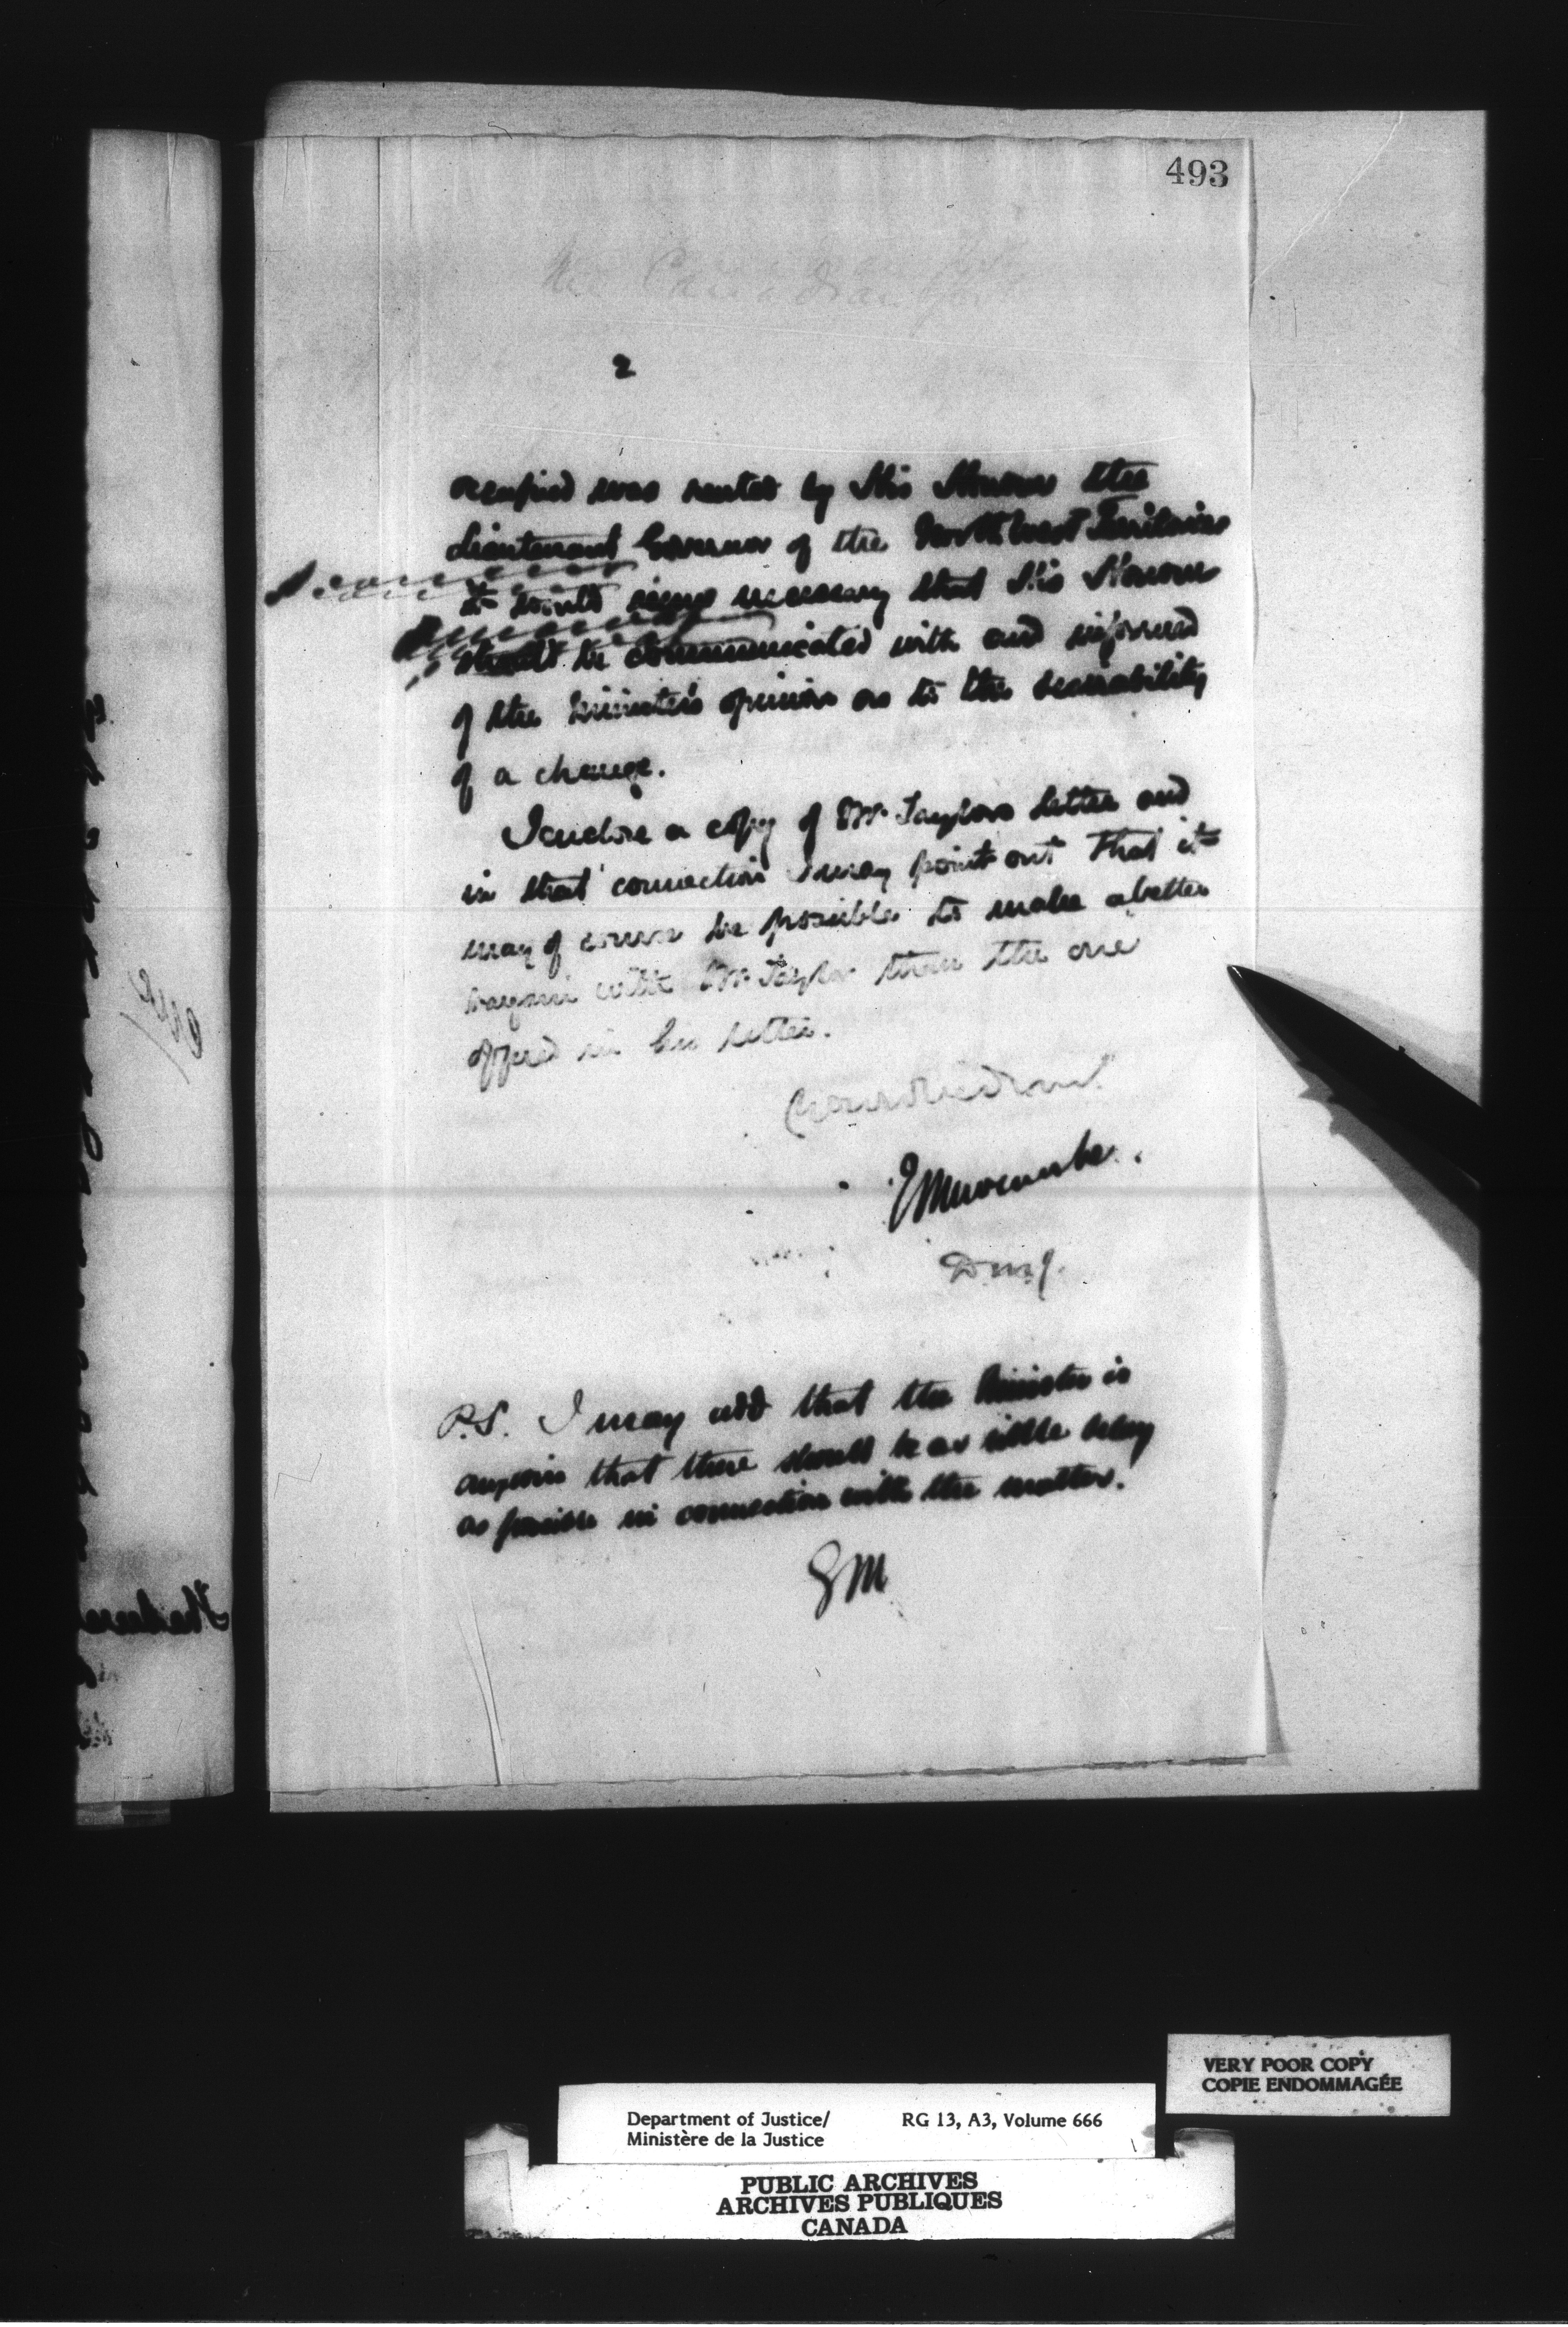 493
2
occupied was rented by His Honour the
Lieutenant Governor of the North West Territories
it would seem necessary that His Honour
should be communicated with and informed
of the Minister's opinion as to the desirability
of a change.
I enclose a copy of Mr. Taylors letter and
in that connection I may point out that it
may of course be possible to make a better
bargain with Mr. Taylor than the one
offered in his letter.
Your obedient
E Newcombe.
D.M.J.
P.S. I may add that the Minister is
anxious that there should be as little delay
as possible in connection with the matter.
EN
VERY POOR COPY
COPIE ENDOMMAGÉE
Department of Justice/ RG 13, A3, Volume 666
Ministère de la Justice
PUBLIC ARCHIVES
ARCHIVES PUBLIQUES
CANADA